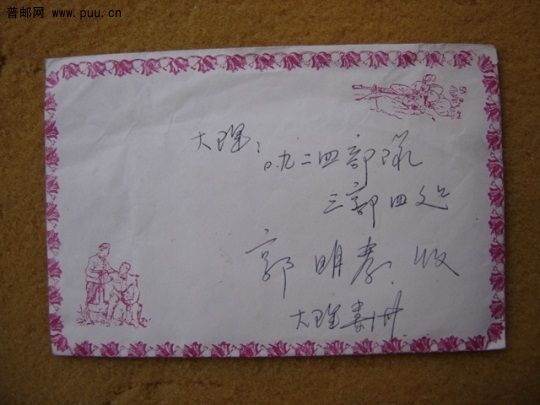 普邮网 www.puu.cn
大理:
0九二四部队
三部四处
郭明孝 收
大理